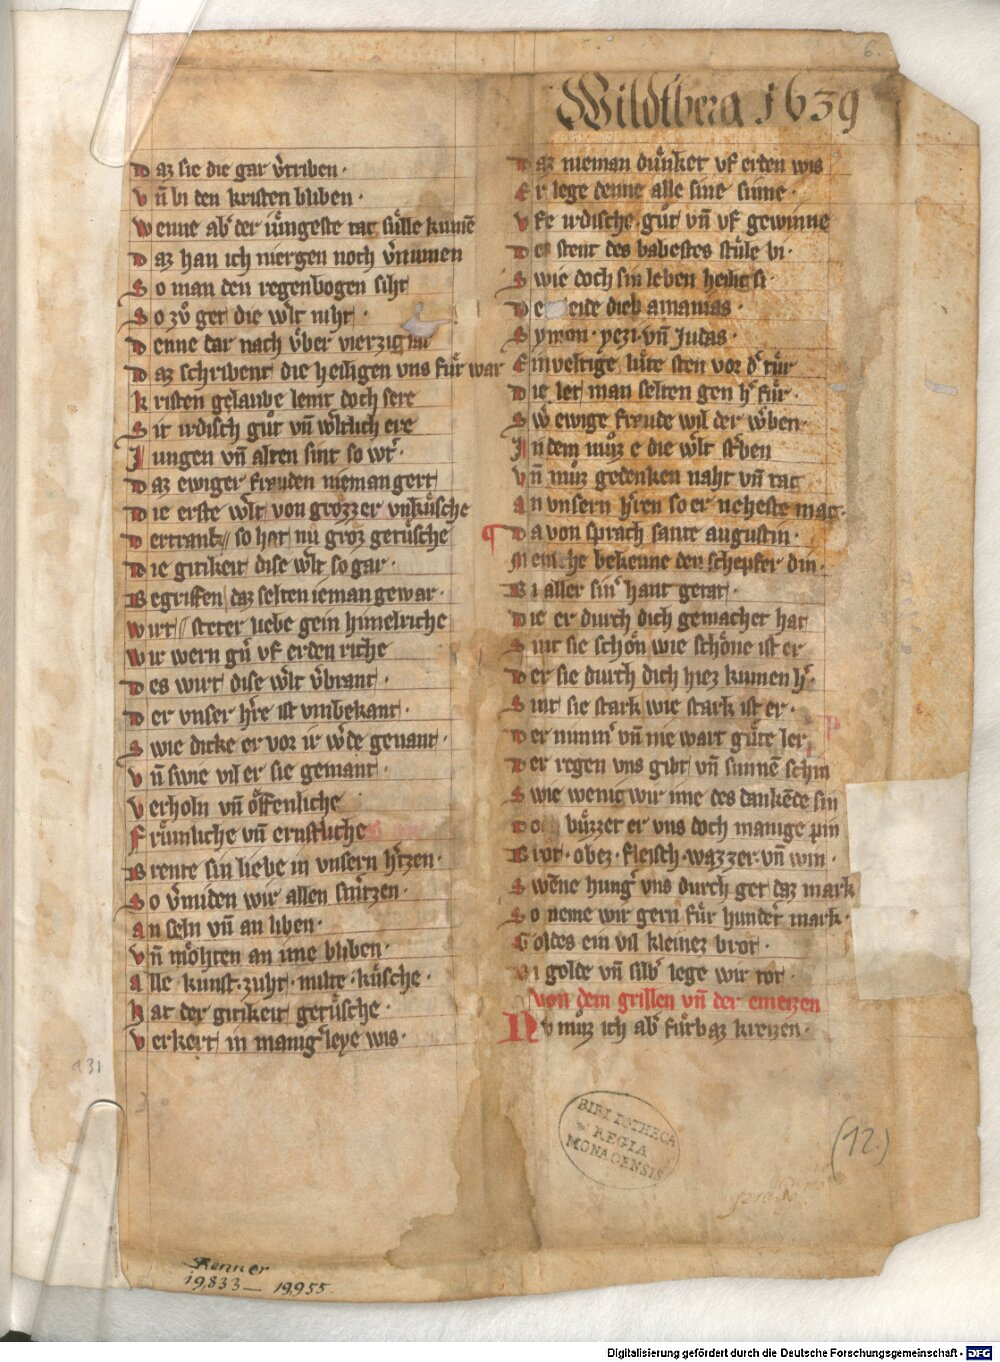 6.
Wildtberg 1639
Daz sie die gar v̓triben·
Vn̄ bi den kristen bliben·
Wenne ab̓ der iu̓ngeste tac su̓lle kumē
Daz han ich niergen noch v̓numen
So man den regenbogen siht
So zů get die w̓lt niht·
Denne dar nach v̓ber vierzig iar
Daz schribent die heiligen vns fu̓r war
Kristen gelaube lemt doch sere
Sit irdisch gůt vn̄ w̓ltlich ere
Jungen vn̄ alten sint so w̓t·
Daz ewiger freuden nieman gert
Die erste w̓lt von grozzer vnku̓sche
Dertrank // so hat nu groz getu̓sche
Die gitikeit dise w̓lt so gar·
Begriffen daz selten ieman gewar·
Wirt // steter liebe gein himelriche
Wir wern gn̓ vf erden riche
Des wirt dise w̓lt v̓brant·
Der vnser h̓re ist vnbekant·
Swie dicke er vor ir w̓de genant·
Vn̄ swie vil er sie gemant·
Verholn vn̄ o̓ffenliche
Fru̓mliche vn̄ ernstliche
Brente sin liebe in vnsern h̓tzen·
So v̓miden wir allen smr̓tzen·
An seln vn̄ an liben·
Vn̄ mo̓hten an ime bliben·
Alle kunst·zuht·milte·ku̓sche·
Hat der gitikeit getu̓sche·
Verkert in manig̓leye wis·
Daz nieman du̓nket vf erden wis
Er lege denne alle sine sinne·
Vfe irdische gůt vn̄ vf gewinne
Der stent des babestes stu̓le bi·
Swie doch sin leben heilic si·
dieb ananias·
Symon·yezi·vn̄ Judas·
Einveltige lu̓te sten vor d̓ tu̓r
Die let man selten gen h̓ fu̓r·
Sw̓ ewige freude wil der w̓ben·
Jn dem můz e die w̓lt st̓ben
Vn̄ můz gedenken naht vn̄ tag
An vnsern h̓ren so er neheste mac·
¶ Da von sprach sante augustin·
Mensche bekenne den schepfer din·
Bi aller sin̓ hant getat·
Die er durch dich gemachet hat
Sint sie scho̓n wie scho̓ne ist er
Der sie durch dich hiez kumen h̓·
Sint sie stark wie stark ist er·
Der nimm̓ vn̄ nie wart gu̓te ler
Der regen vns gibt vn̄ sunnē schin
Swie wenig wir ime des dankēde sin
Doch bu̓zzet er vns doch manige pin
Brot·obez·fleisch·wazzer·vn̄ win·
Swēne hung̓ vns durch get daz mark
So neme wir gern fu̓r hundert mark·
Goldes ein vil kleinez brot·
Bi golde vn̄ silb̓ lege wir tot·
Von dem grillen vn̄ der emeizen
Nv můz ich ab̓ fu̓rbaz kreizen·
a31
BIBLIOTHECA
REGIA
MONACENSIS
(12.)
Renner
19,833— 19955.
Digitalisierung gefördert durch die Deutsche Forschungsgemeinschaft - DFG